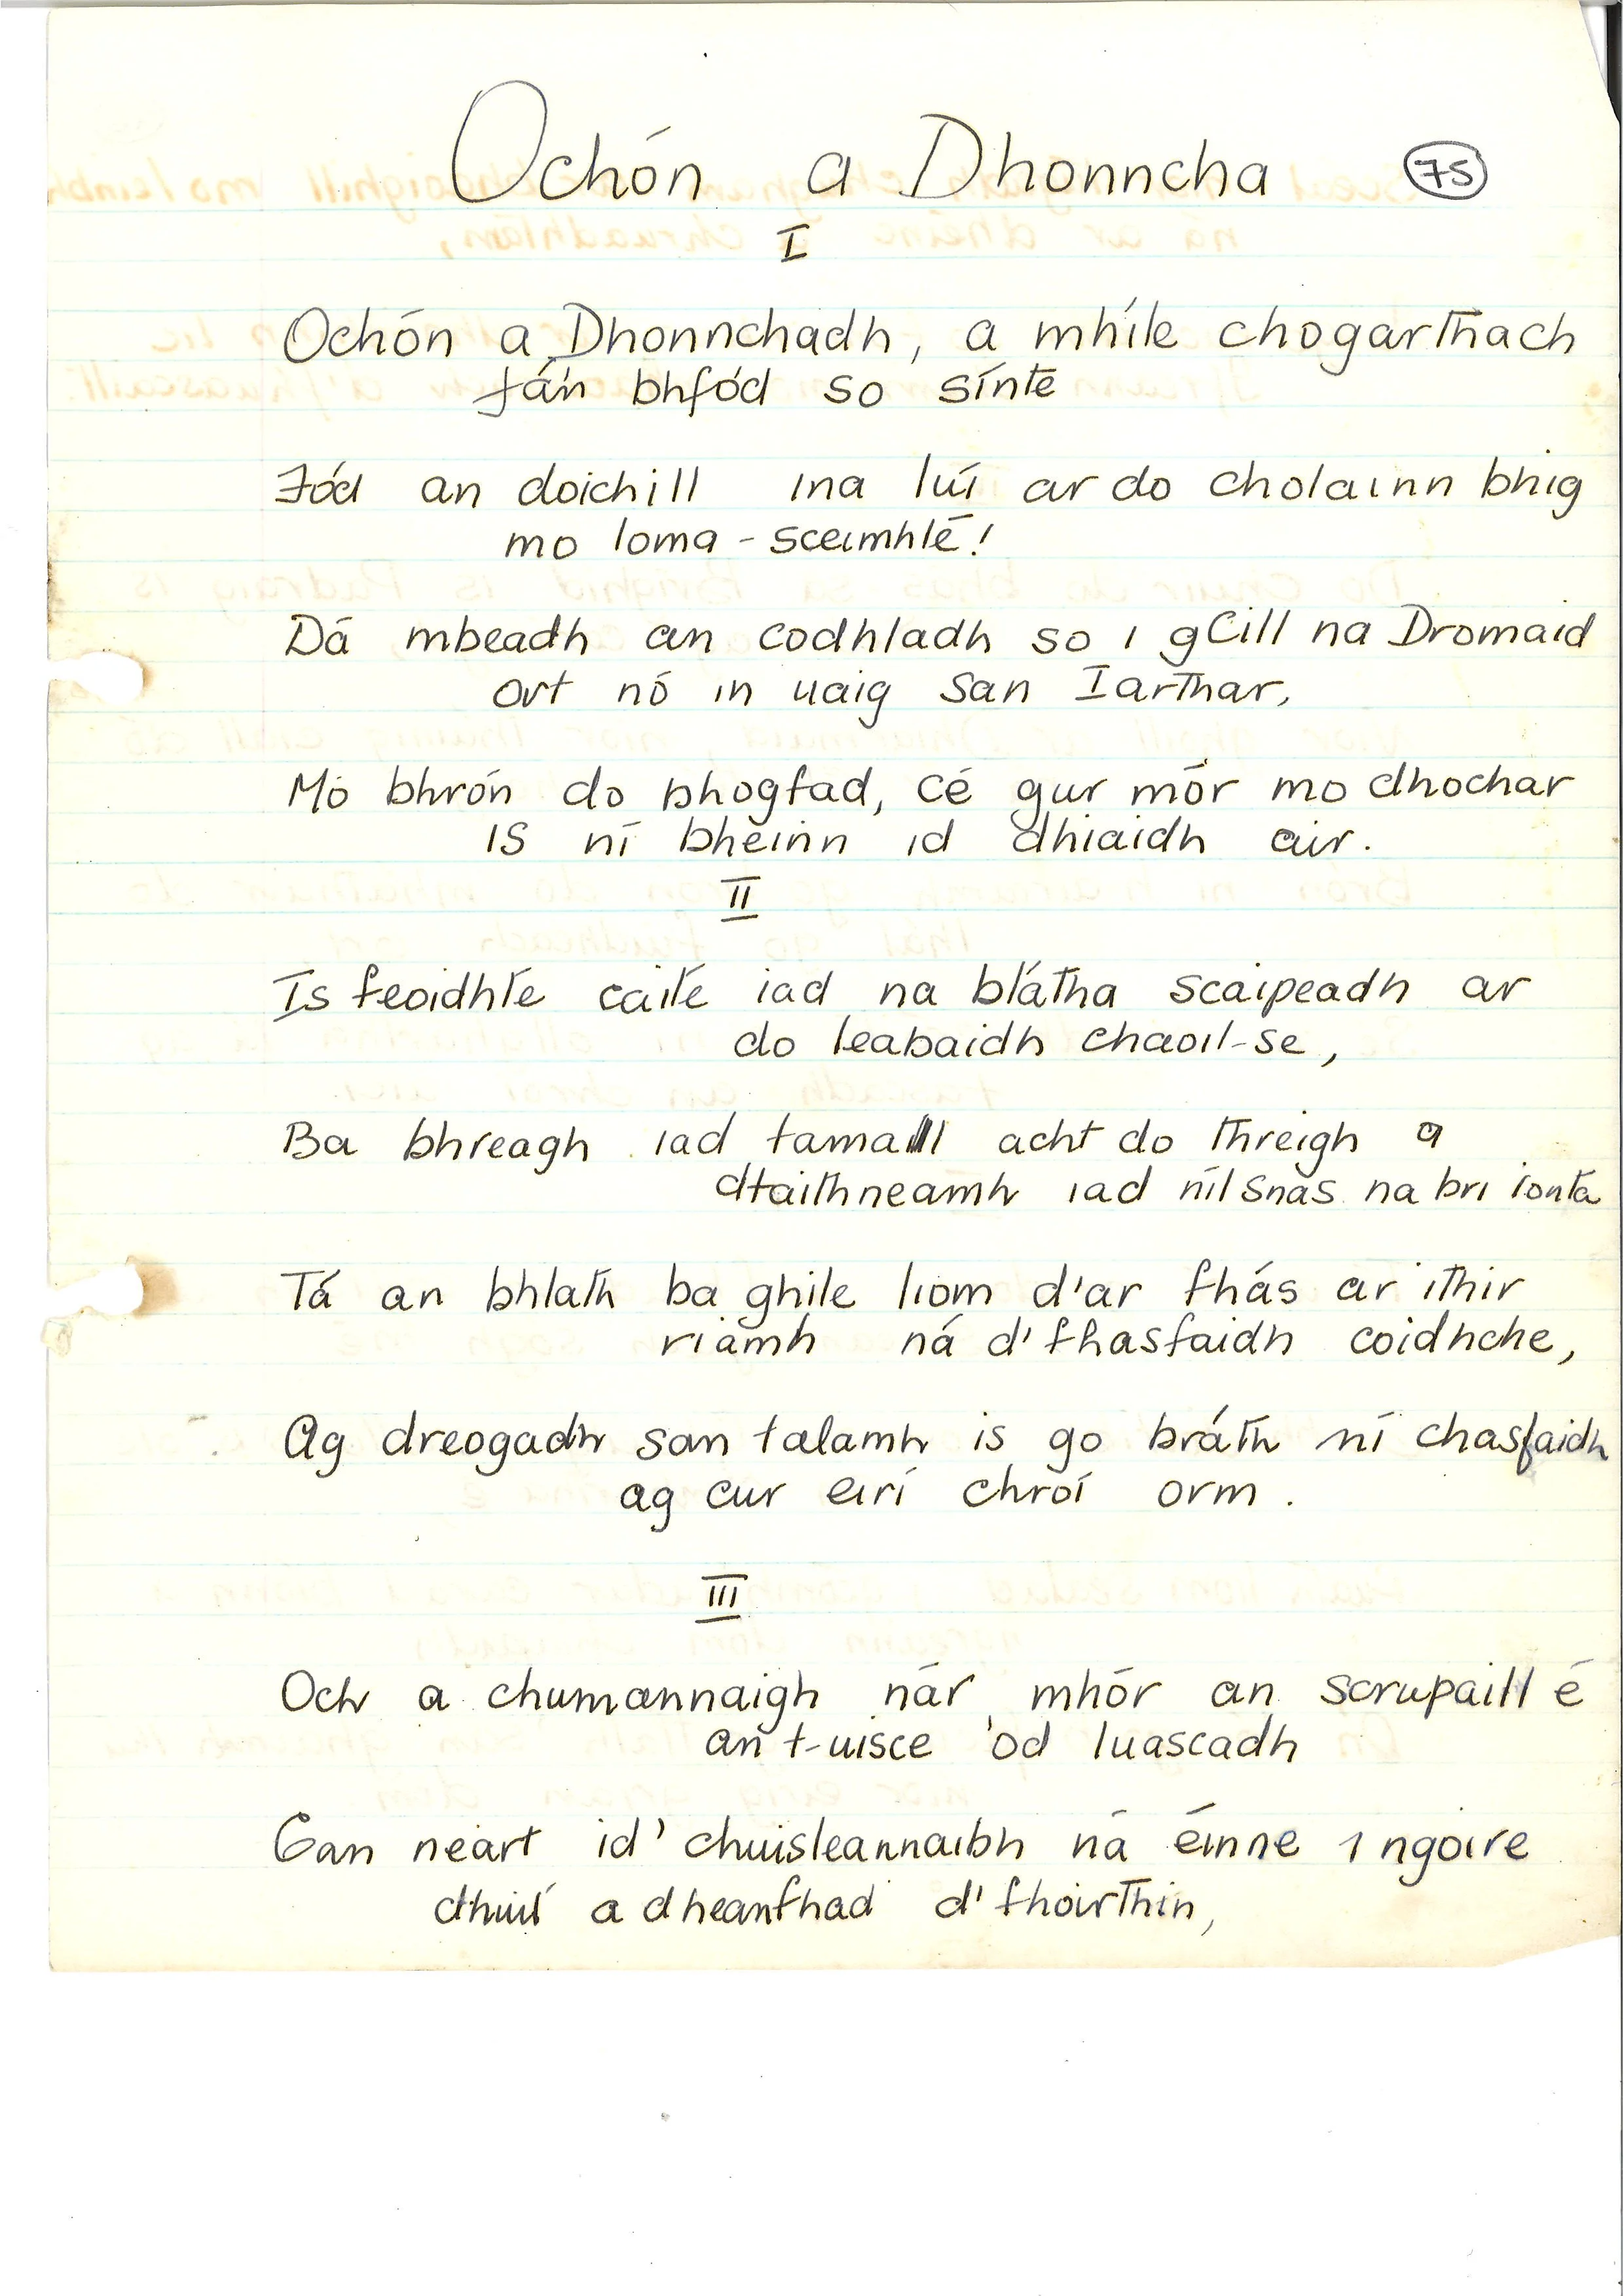 Ochón a Dhonncha 75
I
Ochón a Dhonnchadh, a mhíle chogarthach
fán bhfód so sínte
Fód an doichill ina luí ar do cholainn bhig
mo loma-sceimhlé!
Dá mbeadh an codhladh so i gCill na Dromaid
ort nó in uaig san Iarthar,
Mo bhrón do bhogfad, cé gur mór mo dhochar
is ní bheinn id dhiaidh air.
II
Is feoidhte caite iad na blátha scaipeadh ar
do leabaidh chaoil-se,
Ba bhreagh iad tamall acht do threigh a
dtaithneamh iad níl snas na bri ionta
Tá an bhlath ba ghile liom d'ar fhás ar ithir
riamh ná d'fhasfaidh coidhche,
Ag dreogadh san talamh is go bráth ní chasfaidh
ag cur eirí chroí orm.
III
Och a chumannaigh nár mhór an scrupaill é
an t-uisce 'od luascadh
Gan neart id' chuisleannaibh ná éinne i ngoire
dhuit a dheanfhad d'fhoirthin,